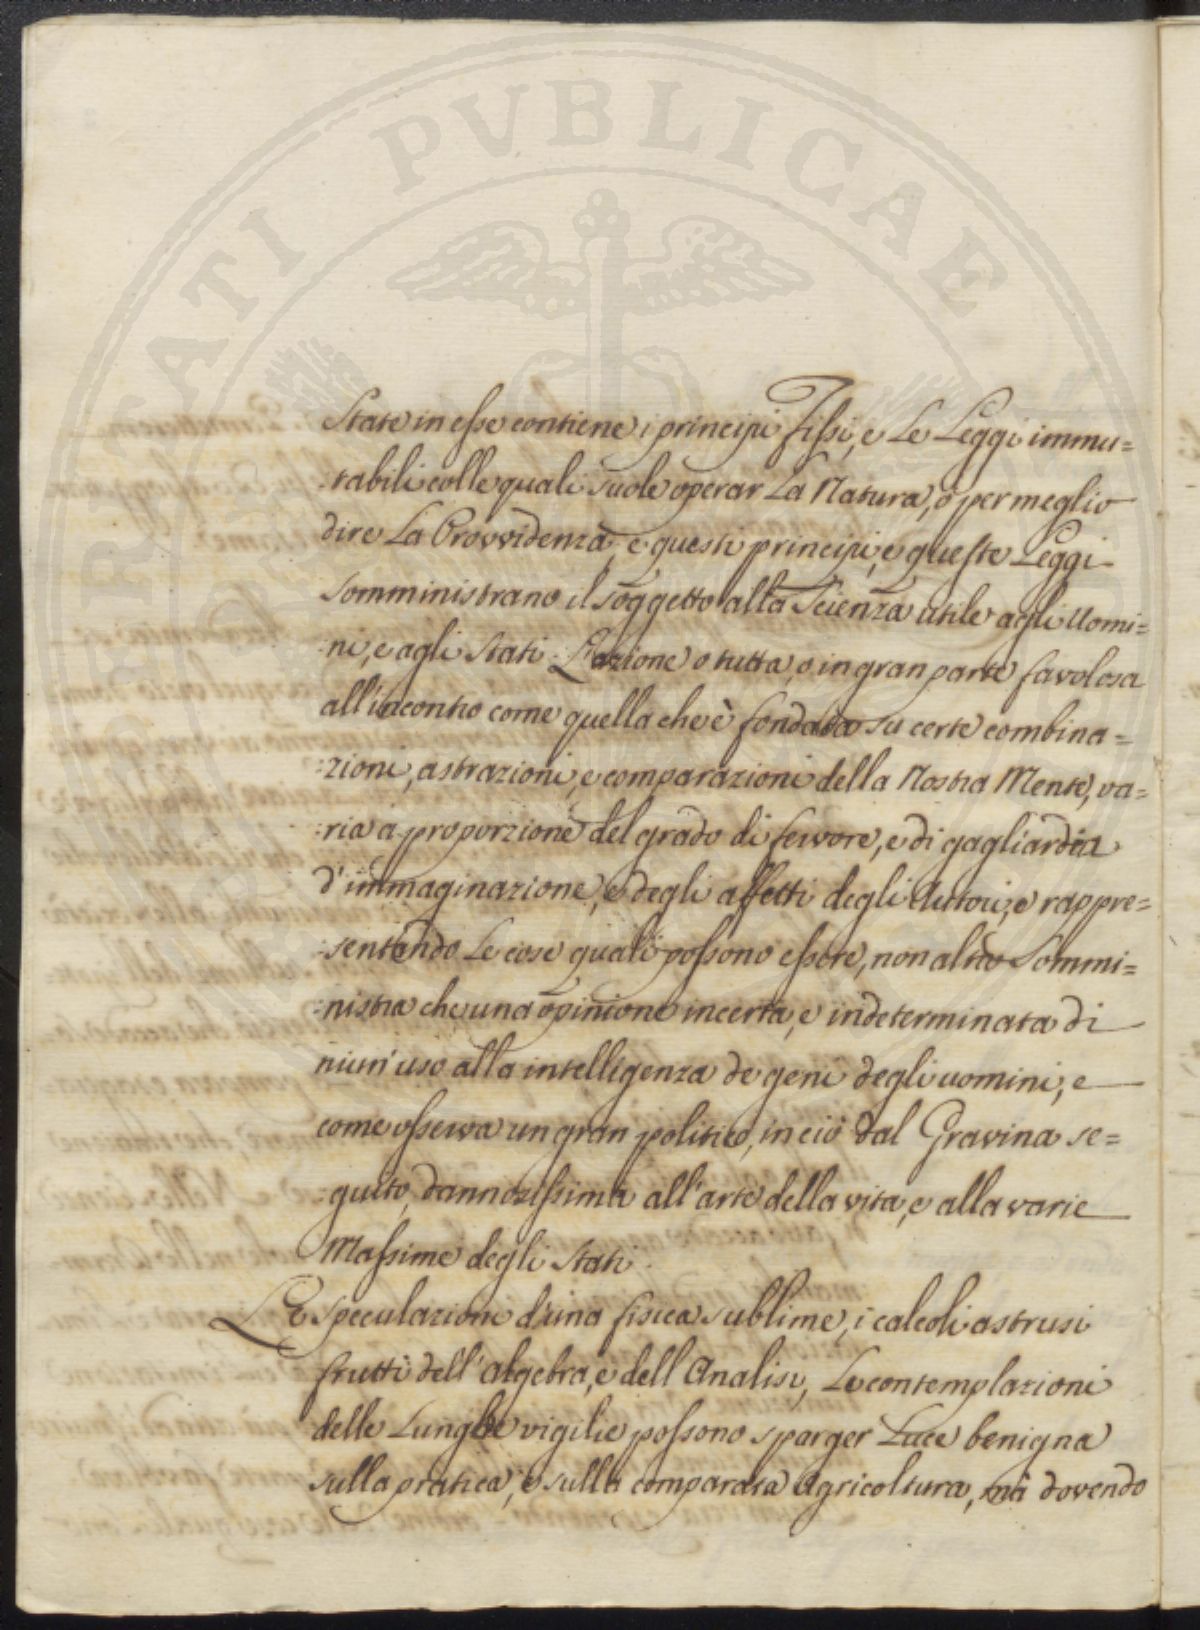 PVBLICAE
State in esse contiene i principi fissi, e Le Leggi immu=
:tabili colle quali suole operar La Natura, o per meglio
dire La Provvidenza, e questi principi, e queste Leggi
somministrano il soggetto alla Scienza utile agli Uomi=
:ni, e agli Stati. L'azione o tutta, o in gran parte favolosa
all'incontro come quella che è fondata su certe combina=
:zioni, astrazioni, e comparazioni della Nostra Mente, va=
:ria a proporzione del grado di fervore, e di gagliardia
d'immaginazione, e degli affetti degli Autori, e rappre=
:sentando Le cose quali possono essere, non altro Sommi=
:nistra che una opinione incerta, e indeterminata di
niun'uso alla intelligenza de geni degli uomini, e
come osserva un gran politico, in ciò dal Gravina se=
:guito, dannosissima all'arte della vita, e alla varie
Massime degli Stati.
LE speculazioni d'una fisica sublime, i calcoli astrusi
frutti dell'algebra, e dell Analisi, Le contemplazioni
delle Lunghe vigilie possono sparger Luce benigna
sulla pratica, e sulla comparata Agricoltura, mà dovendo